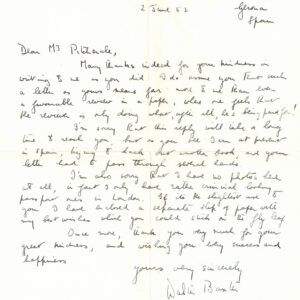 2 June 52
Gerona
Spain
Dear Ms
Many thanks indeed for your kindness in
writing to me as you did. I do assure you that such
a letter as yours means far more to me than even
a favourable review in a paper, when one feels that
the reviewer is only doing what, after all, he's being paid for!
I'm sorry that this reply will take a long
time to reach you, but as you see I am at present
in Spain, trying to hatch out another book and your
letter had to pass through several hands.
I'm also sorry that I have no photos
at all, in fact I only have rather criminal looking
passport ones in London. If it's the slightest use to
you I have enclosed a separate slip of paper with
my best wishes which you could stick on the fly leaf
Once more, thank you very much for your
great kindness, and wishing you every success and
happiness
yours very sincerely